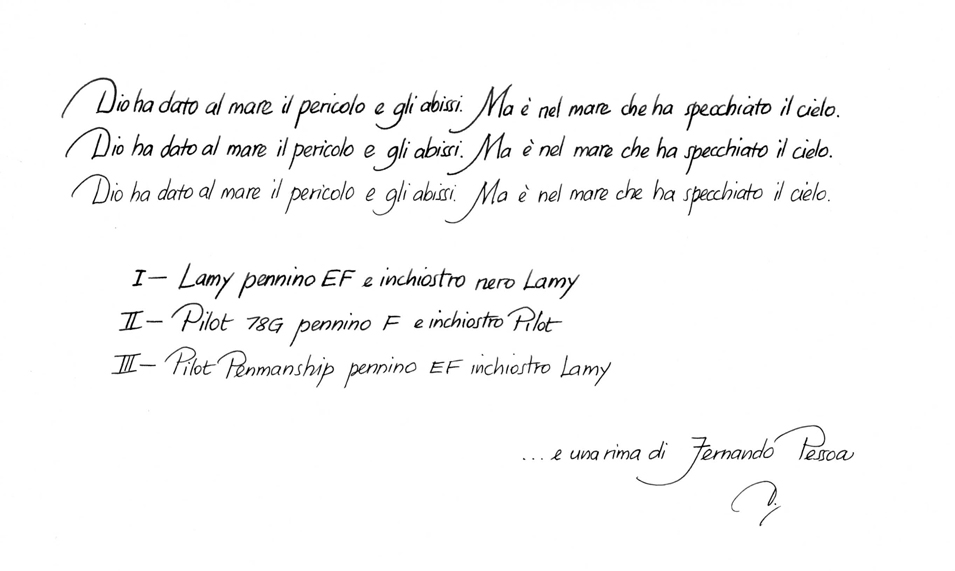 Dio ha dato al mare il pericolo e gli abissi. Ma è nel mare che ha specchiato il cielo.
Dio ha dato al mare il pericolo e gli abissi. Ma è nel mare che ha specchiato il cielo.
Dio ha dato al mare il pericolo e gli abissi. Ma è nel mare che ha specchiato il cielo.
I — Lamy pennino EF e inchiostro nero Lamy
II — Pilot 78G pennino F e inchiostro Pilot
III — Pilot Penmanship pennino EF inchiostro Lamy
... e una rima di Fernando Pessoa